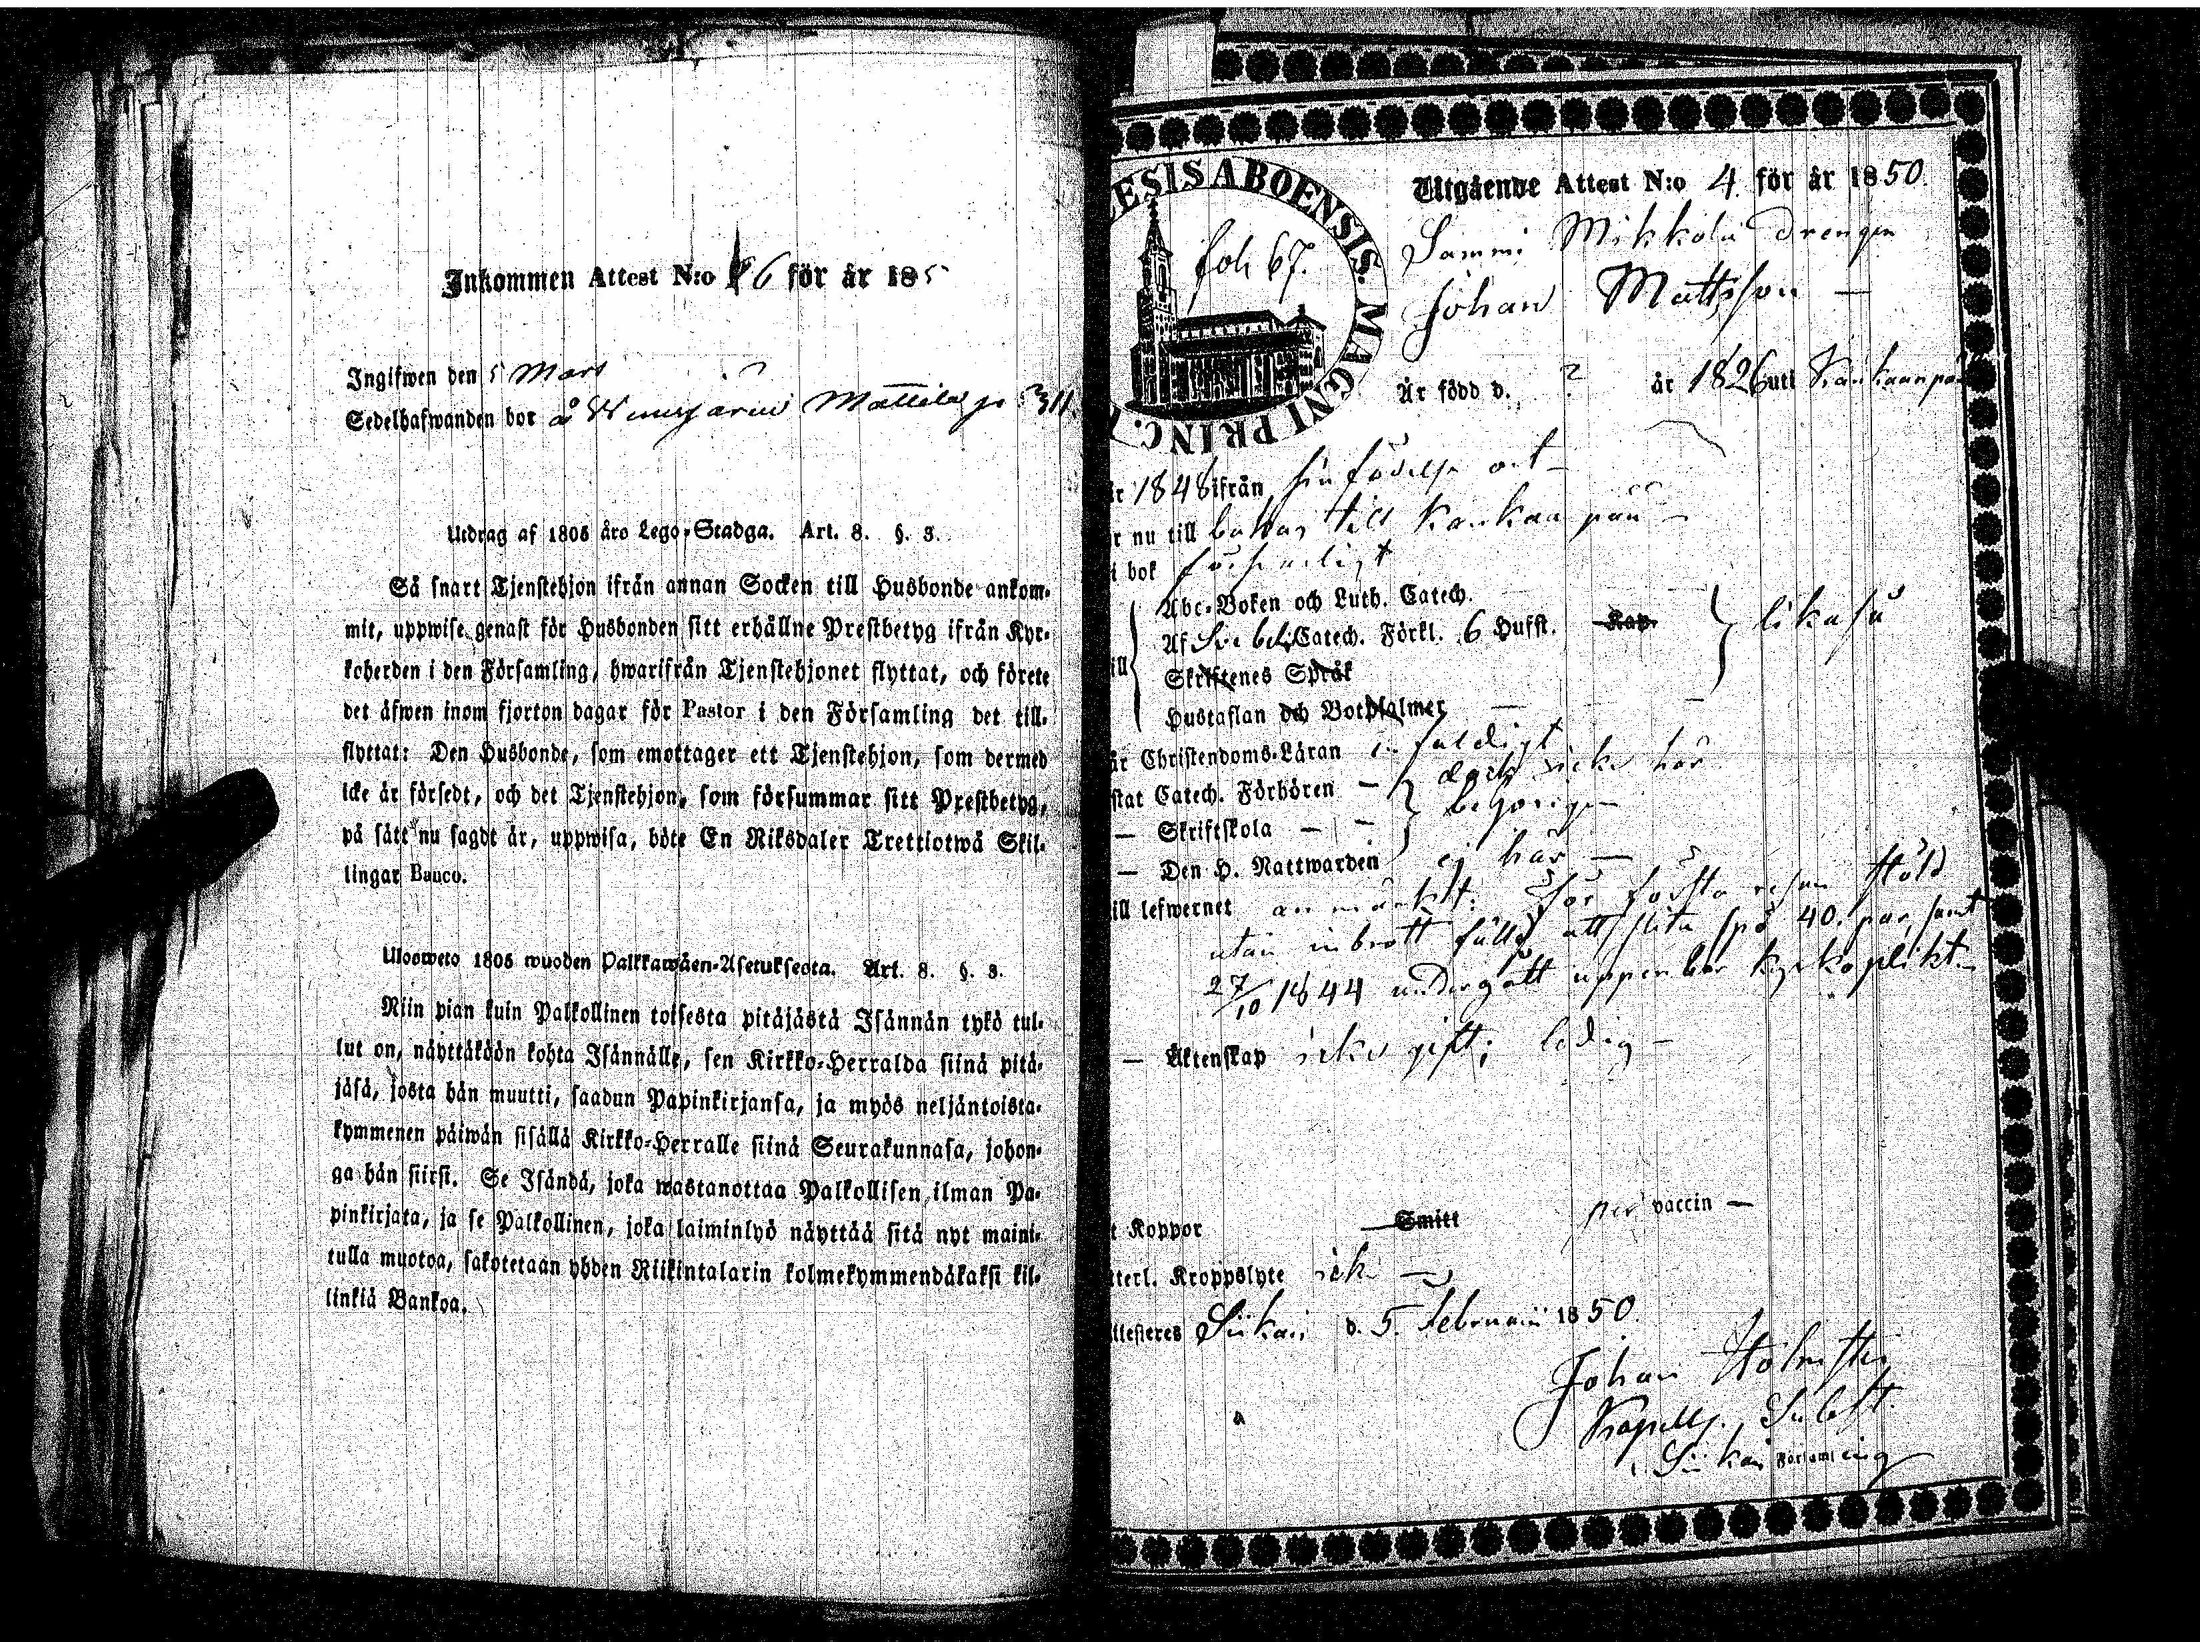 Inkommen Attest N:o 6 för år 185
Ingifwen den 5 Mars
Sedelhafwanden bor å Mattila
Utdrag af 1805 års Lego-Stadga. Art. 8. §. 3.
Så snart Tjenstehjon ifrån annan Socken till Husbonde ankom-
mit, uppwise genast för Husbonden sitt erhållne Prestbetyg ifrån Kyr-
koherden i den Församling, hwarifrån Tjenstehjonet flyttat, och förete
det äfwen inom fjorton dagar för Pastor i den Församling det till-
flyttat: Den Husbonde, som emottager ett Tjenstehjon, som dermed
icke är försedt, och det Tjenstehjon, som försummar sitt Prestbetyg,
på sätt nu sagdt är, uppwisa, böte En Riksdaler Trettiotwå Skil-
lingar Banco.
Ulosweto 1805 wuoden Palkkawäen-Asetuksesta. Art. 8. §. 3.
Niin pian kuin Palkollinen toisesta pitäjästä Isännän tykö tul-
lut on, näyttäköön kohta Isännälle, sen Kirkko-Herralda siinä pitä-
jäsä, josta hän muutti, saadun Papinkirjansa, ja myös neljäntoista-
kymmenen päiwän sisällä Kirkko-Herralle siinä Seurakunnasa, johon-
ga hän siirsi. Se Isändä, joka wastanottaa Palkollisen ilman Pa-
pinkirjata, ja se Palkollinen, joka laiminlyö näyttää sitä nyt maini-
tulla muotoa, sakotetaan yhden Riikintalarin kolmekymmendäkaksi kil-
linkiä Bankoa.
ESIS ABOENSIS. MAGNI PRINC.
fol 67.
Utgående Attest N:o 4 för år 1850.
Sammi Mikkola drengen
Johan Mattsson —
Är född d. ? år 1826 uti Kankaanpää
år 1848 ifrån sin födelse ort —
r nu till bakas till Kankaanpää —
i bok försvarligt
Abc-Boken och Luth. Catech.
Af Catech. Förkl. 6 Husst. Kap. } likaså
Skriftenes Språk
Hustaflan och Botpsalmer
är Christendoms-Läran enfaldigt
stat Catech. Förhören — } dock icke här
— Skriftskola — behörigen
— Den H. Nattwarden ej här —
ill lefwernet anmärkt: För första resan stöld
utan inbrott fälld att slita spö 40. par, samt
27/10 1844 undergått uppenbar kyrkoplikt —
— Äktenskap icke gift; ledig —
t Koppor Smitt per vaccin —
tterl. Kroppslyte ick —
ttesteres Siikais d. 5. Februarii 1850.
Johan
Kapell
Siikais Församling